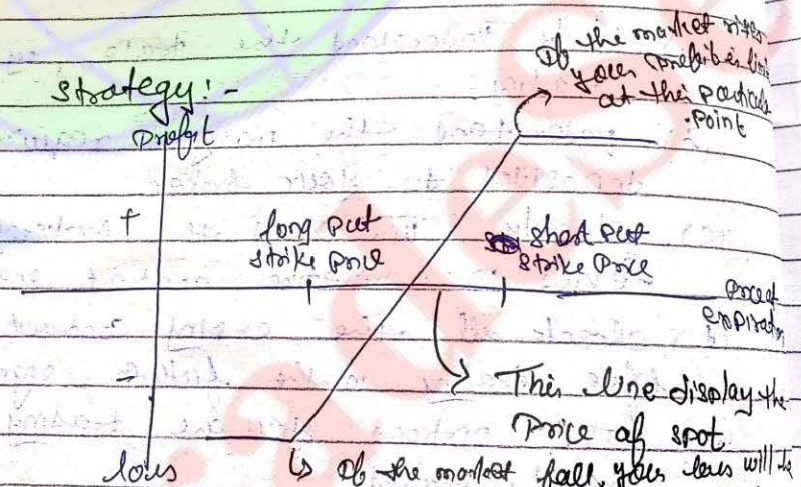 If the market rises
your profit is limi
at this particula
point
Strategy:-
Profit
+
long put
strike price
short put
strike Price
Price at
expiratn
-
This line display the
Price of spot
loss
If the market fall, your loss will be